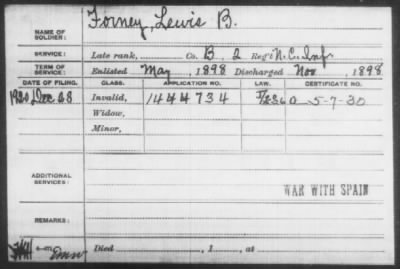 NAME OF SOLDIER: Forney, Lewis B.
SERVICE: Late rank, Co. B, 2 Reg't N.C. Inf.
TERM OF SERVICE: Enlisted May, 1898 Discharged Nov, 1898
DATE OF FILING. CLASS. APPLICATION NO. LAW. CERTIFICATE NO.
Dec 28 Invalid, 1444734 5-7-30
Widow,
Minor,
ADDITIONAL SERVICES:
WAR WITH SPAIN
REMARKS:
Died , 1 , at